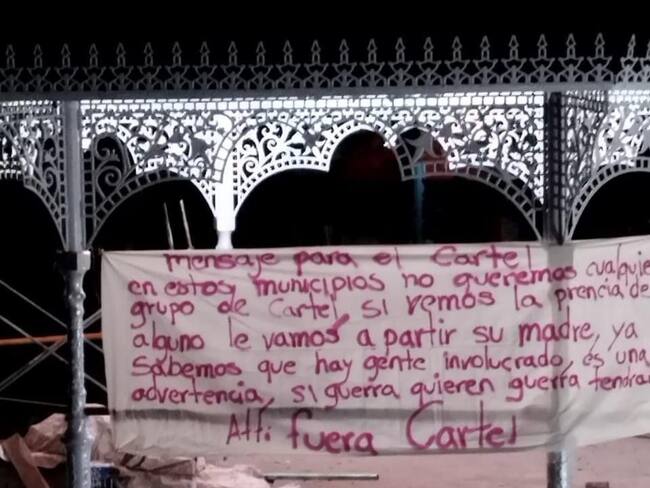 mensaje para el Cartel
en estos municipios no queremos cualquie
grupo de Cartel si vemos la prencia de
alguno le vamos a partir su madre, ya
sabemos que hay gente involucrado, es una
advertencia, si guerra quieren guerra tendra
Att: fuera Cartel